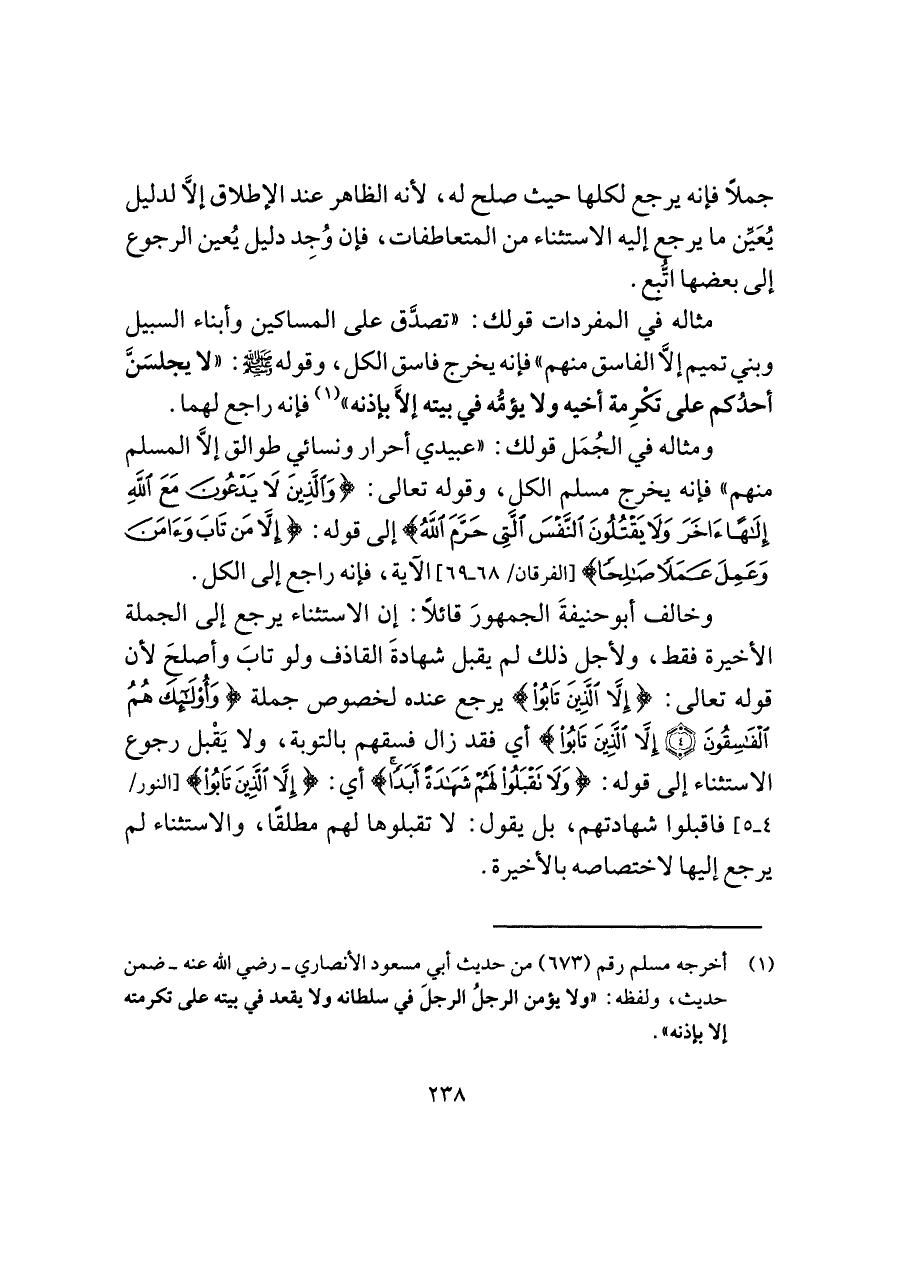 جملاً فإنه يرجع لكلها حيث صلح له، لأنه الظاهر عند الإطلاق إلاَّ لدليل
يُعَيِّن ما يرجع إليه الاستثناء من المتعاطفات، فإن وُجِد دليل يُعين الرجوع
إلى بعضها اتُّبع.
مثاله في المفردات قولك: «تصدَّق على المساكين وأبناء السبيل
وبني تميم إلاَّ الفاسق منهم» فإنه يخرج فاسق الكل، وقوله ﷺ: «لا يجلسَنَّ
أحدُكم على تَكْرِمة أخيه ولا يؤمُّه في بيته إلاَّ بإذنه»(١) فإنه راجع لهما.
ومثاله في الجُمَل قولك: «عبيدي أحرار ونسائي طوالق إلاَّ المسلم
منهم» فإنه يخرج مسلم الكل، وقوله تعالى: ﴿وَٱلَّذِينَ لَا يَدْعُونَ مَعَ ٱللَّهِ
إِلَٰهًا ءَاخَرَ وَلَا يَقْتُلُونَ ٱلنَّفْسَ ٱلَّتِي حَرَّمَ ٱللَّهُ﴾ إلى قوله: ﴿إِلَّا مَن تَابَ وَءَامَنَ
وَعَمِلَ عَمَلًا صَٰلِحًا﴾ [الفرقان/ ٦٨ـ٦٩] الآية، فإنه راجع إلى الكل.
وخالف أبو حنيفةَ الجمهورَ قائلاً: إن الاستثناء يرجع إلى الجملة
الأخيرة فقط، ولأجل ذلك لم يقبل شهادةَ القاذف ولو تابَ وأصلحَ لأن
قوله تعالى: ﴿إِلَّا ٱلَّذِينَ تَابُواْ﴾ يرجع عنده لخصوص جملة ﴿وَأُوْلَٰٓئِكَ هُمُ
ٱلْفَٰسِقُونَ ٤ إِلَّا ٱلَّذِينَ تَابُواْ﴾ أي فقد زال فسقهم بالتوبة، ولا يَقْبل رجوع
الاستثناء إلى قوله: ﴿وَلَا تَقْبَلُواْ لَهُمْ شَهَٰدَةً أَبَدًا﴾ أي: ﴿إِلَّا ٱلَّذِينَ تَابُواْ﴾ [النور/
٤ـ٥] فاقبلوا شهادتهم، بل يقول: لا تقبلوها لهم مطلقًا، والاستثناء لم
يرجع إليها لاختصاصه بالأخيرة.
(١) أخرجه مسلم رقم (٦٧٣) من حديث أبي مسعود الأنصاري ـ رضي الله عنه ـ ضمن
حديث، ولفظه: «ولا يؤمن الرجلُ الرجلَ في سلطانه ولا يقعد في بيته على تكرمته
إلا بإذنه».
٢٣٨